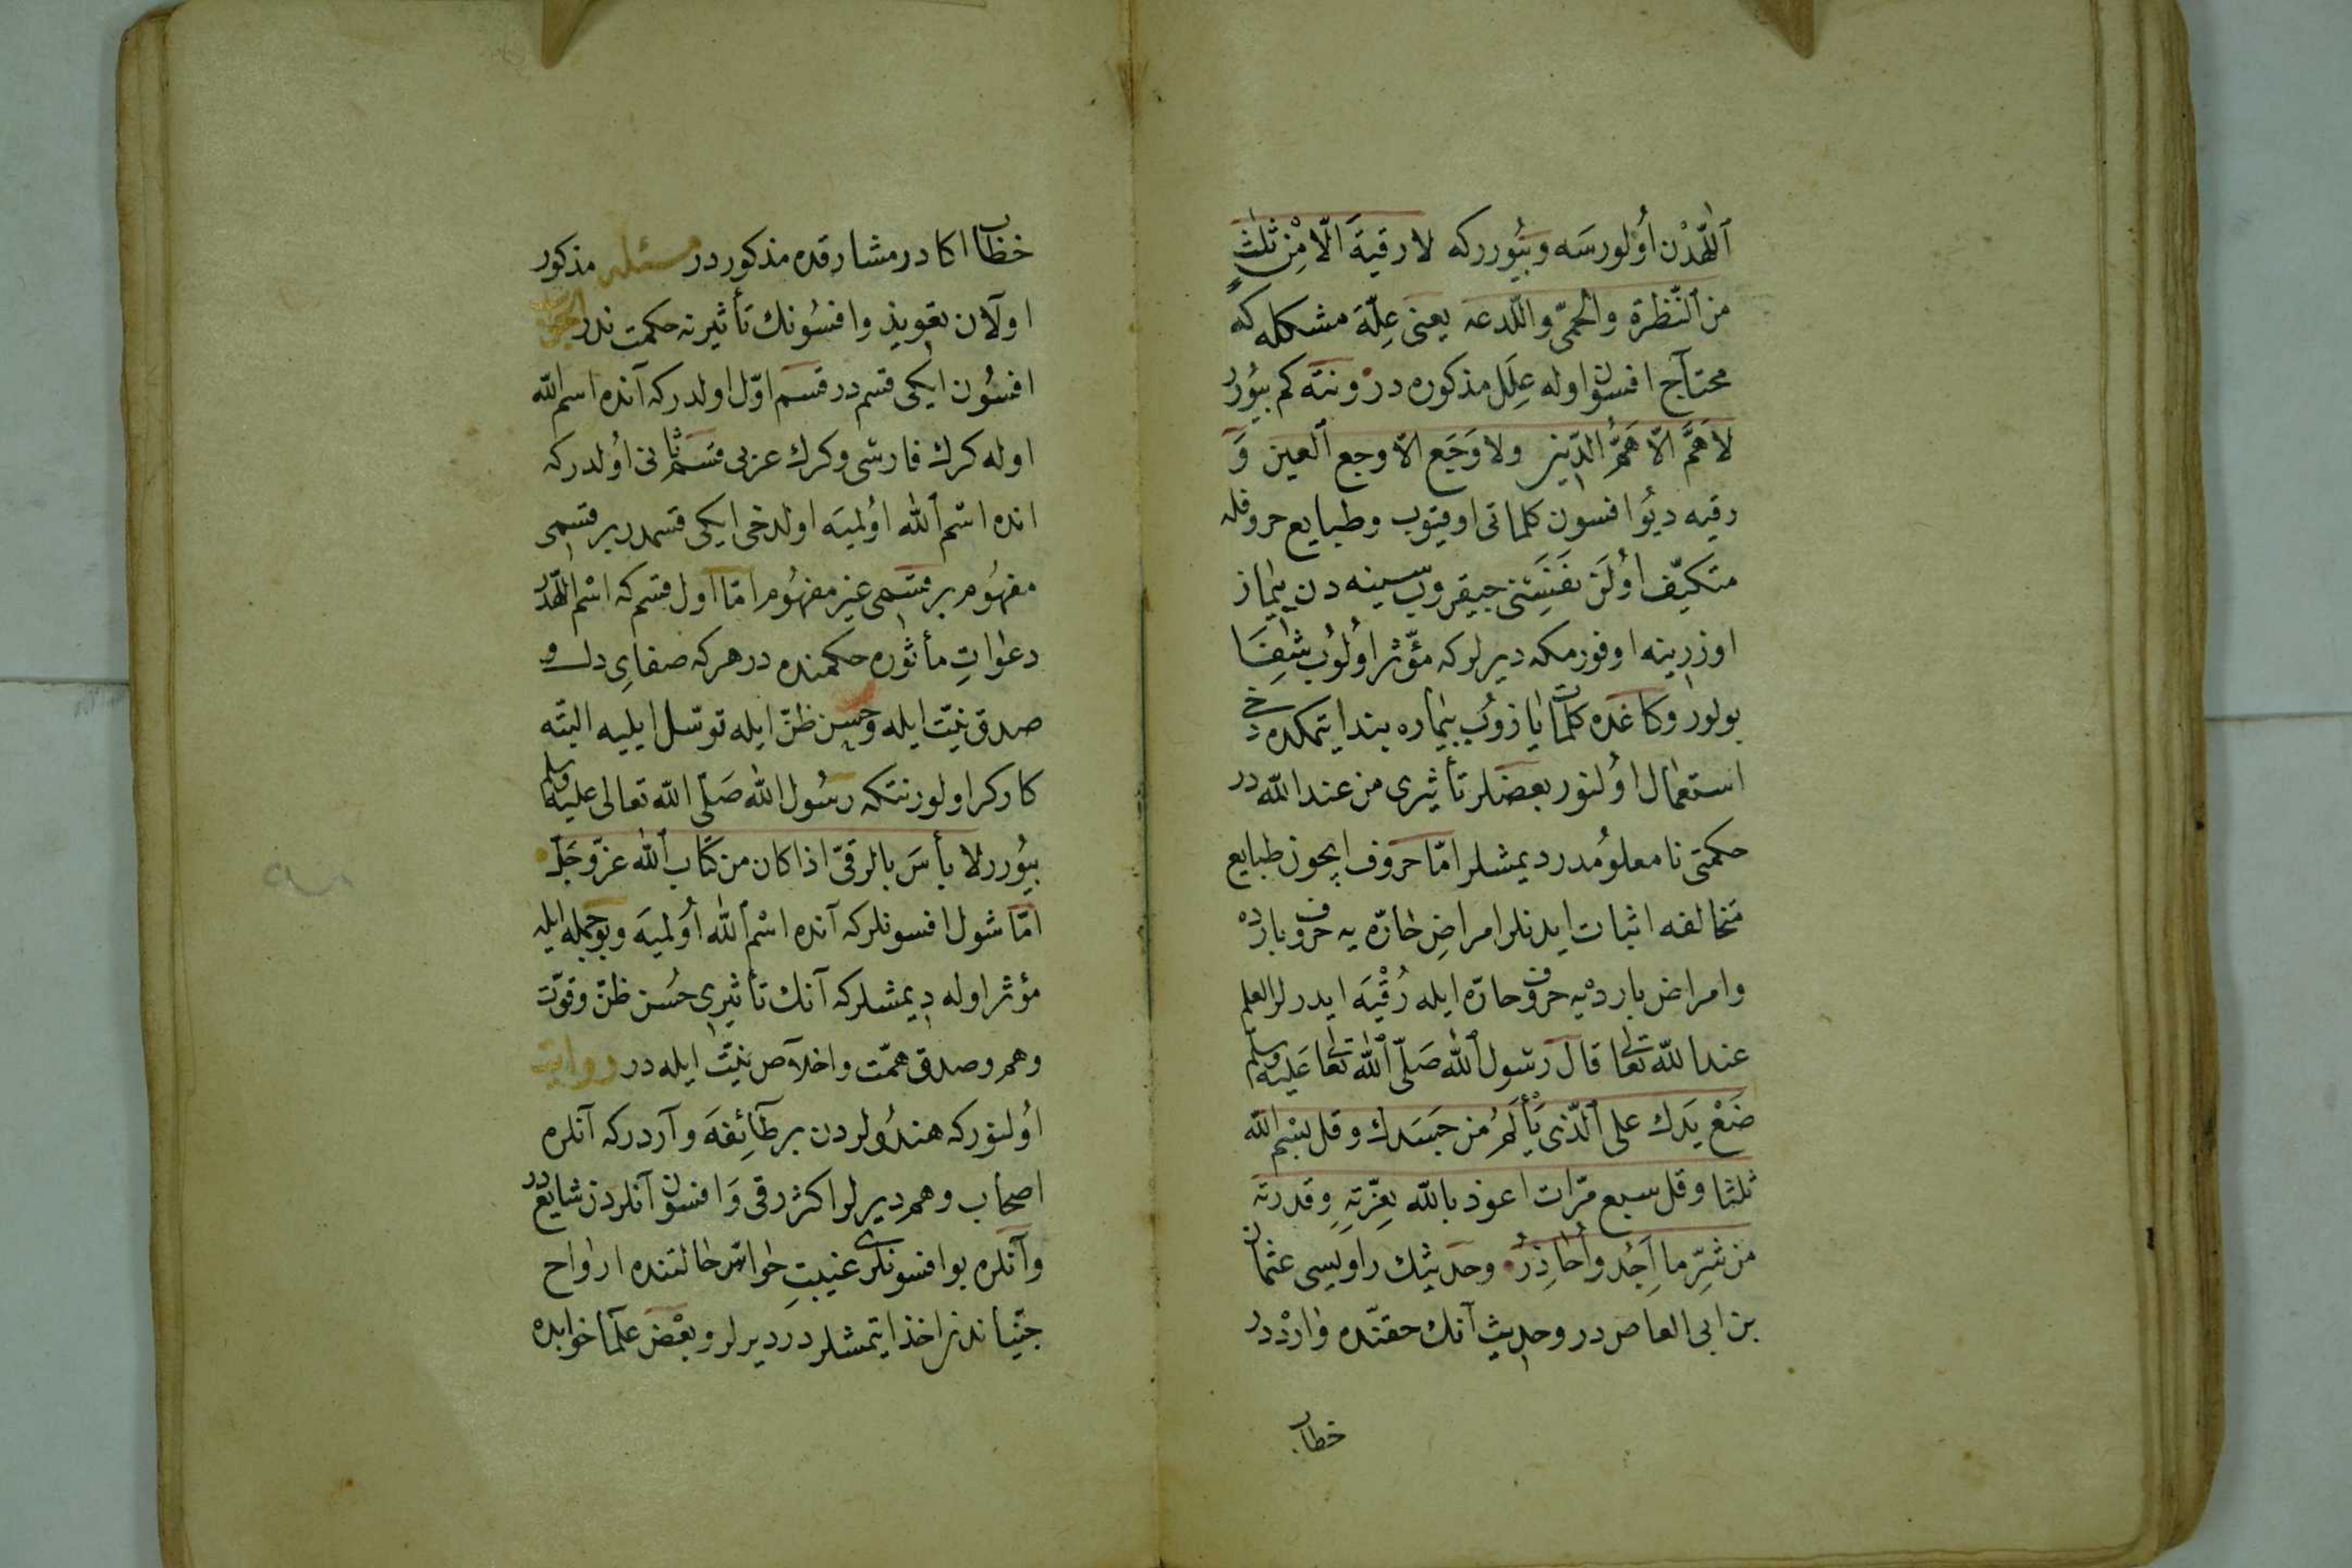 اللّهدْن اُولورسَه وبیُوررکه لا رقیةَ الّا مِنْ ثلٰثٍ
من النّظرة والحمّی واللّدعه یعنی عِلّهٔ مشکله که
محتاج افسون اوله عِلَل مذکوره در ونته کم بیُورر
لا هَمَّ الّا هَمُّ الدّین ولا وَجَع الّا وجع العین وَ
رقیه دیُو افسون کلماتی اوقیوب وطبایع حروفله
متکیّف اُولَن نفَسِنی چیقروب سینه دن بیمار
اوزرینه اوفورمکه دیرلر که مؤثّر اُولُوب شِفَا
بولور وکاغده کلمات یازوُب بیماره بند ایتمکده دخی
استعمال اُولنور بعضلر تأثیری من عند اللّه در
حکمتی نا معلوُمدر دیمشلر امّا حروف ایچون طبایع
مخالفه اثبات ایدنلر امراضِ حارّه یه حروف بارده
وامراض بارده یه حروف حارّه ایله رُقْیَه ایدرلر العلم
عند اللّه تعالی قال رسول اللّه صَلّی اللّه تعالی عَلیه وسلم
ضَعْ یَدك علی الّذی یَأْلَمُ من جَسَدك وقل بسْم اللّه
ثلثا وقل سبع مرّات اعوذ باللّه بِعزّتِهِ وقدرته
من شرّ ما اَجِدُ واُحاذِرُ وحدیثك راویسی عثمان
بن ابی العاص در وحدیث آنك حقنده وارْددر
خطاب
خطاب اکا در مشارقده مذکور در مسئله مذکور
اولان تعویذ وافسُونك تأثیرنه حکمت ندر الجواب
افسُون ایکی قسم در قسم اوّل اولدر که آنده اسم اللّه
اوله کرك فارسی وکرك عربی قسم ثانی اُولدر که
انده اسْم اللّه اُولمیَه اولدخی ایکی قسمدر بر قسمی
مفهُوم بر قسمی غیر مفهُوم امّا اول قسم که اسْم اللّهدر
دعوات مأثوره حکمنده در هر که صفایِ دل و
صدق نیّت ایله وحسن ظنّ ایله توسّل ایلیه البتّه
کارکر اولور نتکه رسُول اللّه صَلّی اللّه تعالی علیه وسلم
بیُورر لا بأسَ بالرقیّ اذا کان من کتاب اللّه عزّ وجَلّ
امّا شول افسونلر که آنده اسْم اللّه اُولمیَه وبو جمله ایله
مؤثر اوله دیمشلر که آنك تأثیری حُسن ظنّ وقوّت
وهم وصدق همّت واخلاص نیّت ایله در روایت
اُولنور که هندُولردن بر طآئِفهَ واردر که آنلره
اصحاب وهم دیرلر اکثر رقی وَافسون آنلردن شایع در
وآنلره بو افسونلری غیبتِ حواس حالتنده ارواح
جنّیاندن اخذ ایتمشلردر دیرلر وبعْض علما خوابده